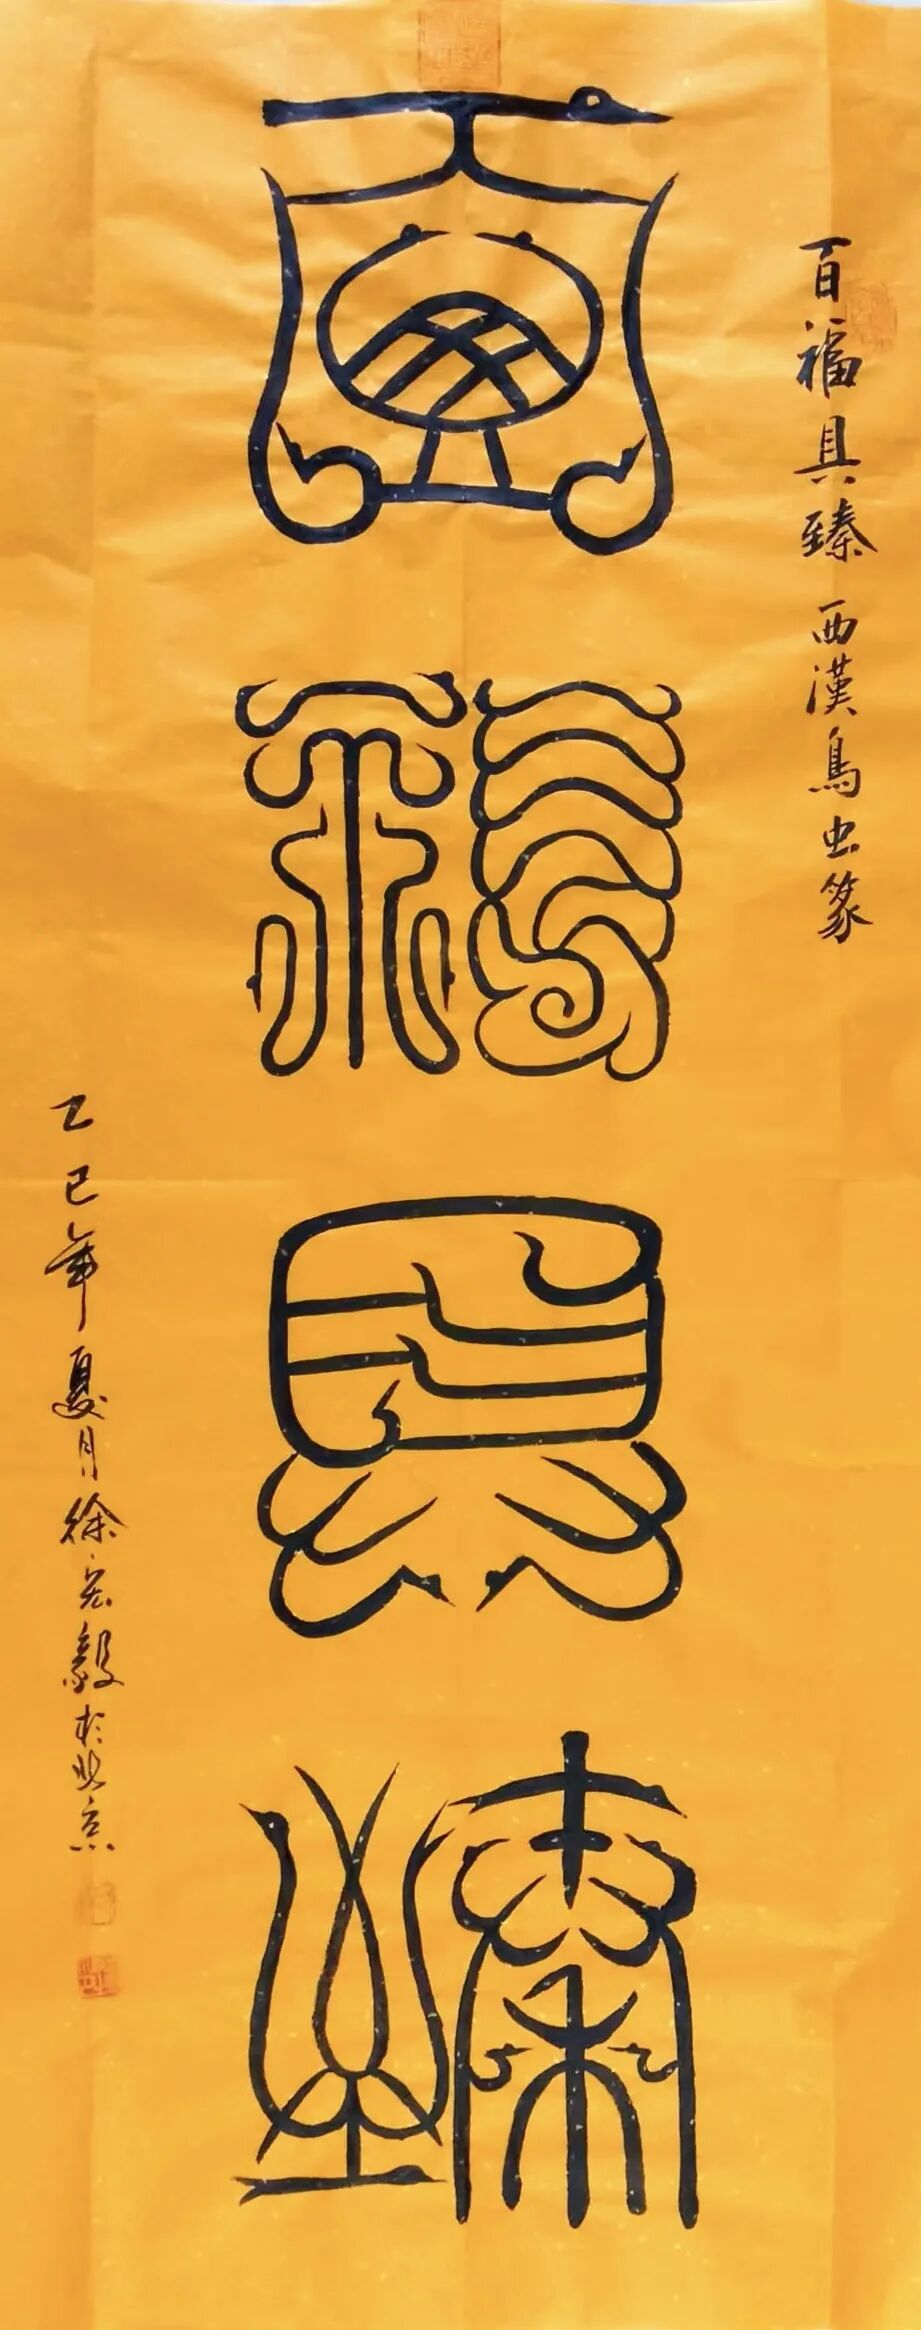 百福具臻
百福具臻 西漢鳥虫篆
乙巳年夏月徐宏毅於北京